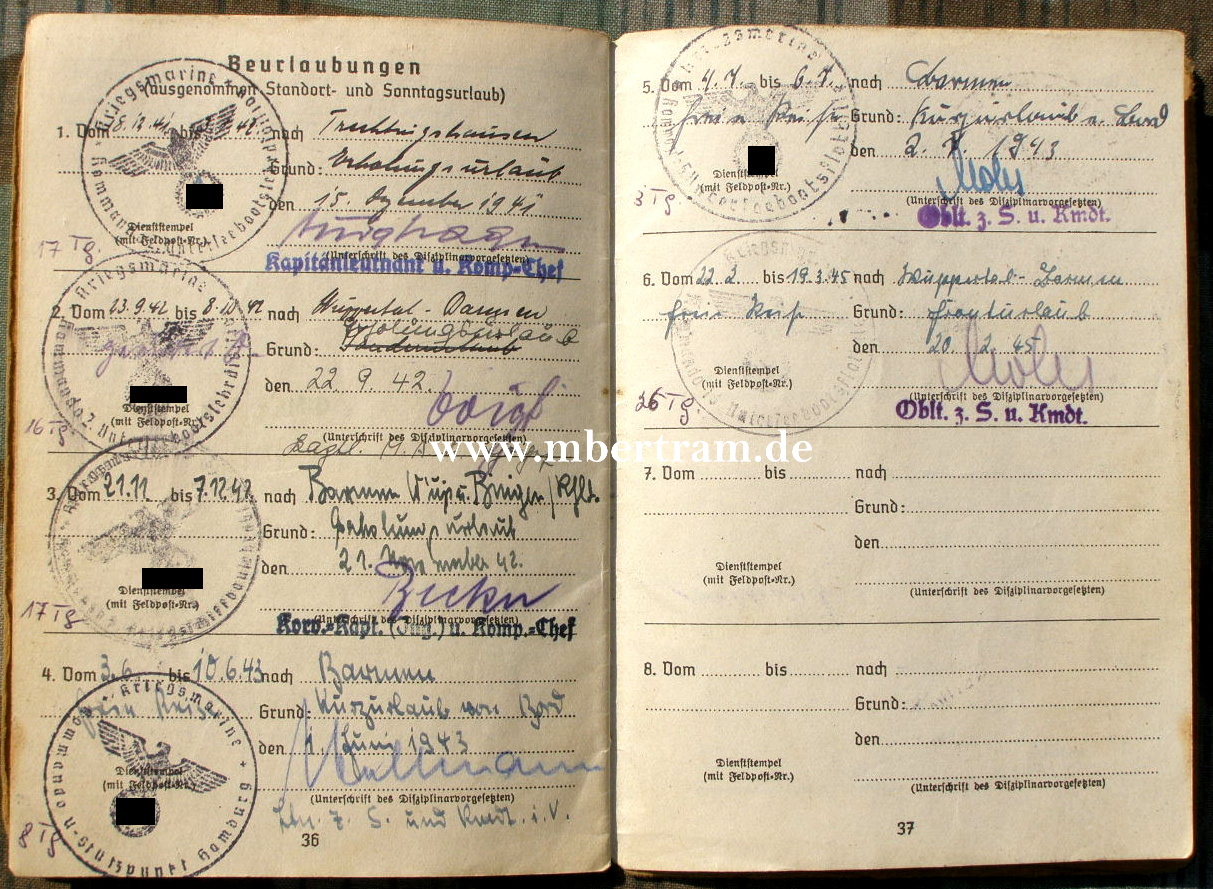 Beurlaubungen
(ausgenommen Standort- und Sonntagsurlaub)
1. Vom 8.12.41 bis nach Trechtingshausen
Grund: Erholungsurlaub
den 15. Dezember 1941
Dienststempel
(mit Feldpost-Nr.)
17 Tg.
(Unterschrift des Disziplinarvorgesetzten)
Kapitänleutnant u. Komp-Chef
2. Vom 23.9.42 bis 8.10.42 nach Wuppertal-Barmen
Erholungsurlaub
Grund: Sonderurlaub
den 22.9.42.
Voigt
Dienststempel
(mit Feldpost-Nr.)
16 Tg.
(Unterschrift des Disziplinarvorgesetzten)
3. Vom 21.11 bis 7.12.42 nach Barmen Wup u. Bingen/Rh
Grund: Erholungsurlaub
den 21. November 42.
Becker
Dienststempel
(mit Feldpost-Nr.)
17 Tg
(Unterschrift des Disziplinarvorgesetzten)
Korv.-Kapt. (Ing.) u. Komp.-Chef
4. Vom 3.6. bis 10.6.43 nach Barmen
freie Reise Grund: Kurzurlaub von Bord
den 1. Juni 1943
Dienststempel
(mit Feldpost-Nr.)
8 Tg
(Unterschrift des Disziplinarvorgesetzten)
Ltn. z. S. und Kmdt. i.V.
36
Kriegsmarine
5. Vom 4.7. bis 6.7. nach Barmen
freie Reise Grund: Kurzurlaub v. Bord
den 2.7.1943
Dienststempel
(mit Feldpost-Nr.)
3 Tg.
(Unterschrift des Disziplinarvorgesetzten)
Oblt. z. S. u. Kmdt.
6. Vom 22.2. bis 19.3.45 nach Wuppertal-Barmen
freie Reise Grund: Fronturlaub
den 20.2.45
Dienststempel
(mit Feldpost-Nr.)
26 Tg.
(Unterschrift des Disziplinarvorgesetzten)
Oblt. z. S. u. Kmdt.
www.mbertram.de
7. Vom bis nach
Grund:
den
Dienststempel
(mit Feldpost-Nr.)
(Unterschrift des Disziplinarvorgesetzten)
8. Vom bis nach
Grund:
den
Dienststempel
(mit Feldpost-Nr.)
(Unterschrift des Disziplinarvorgesetzten)
37